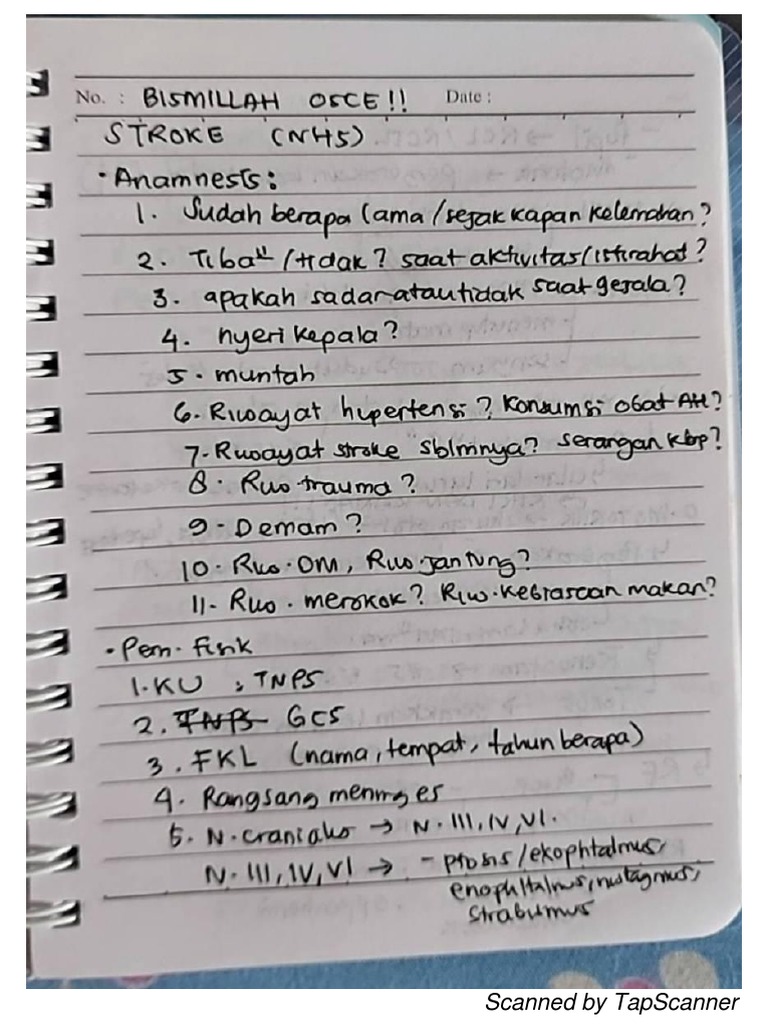 No. : BISMILLAH OSCE!! Date :
STROKE (NHS)
• Anamnests:
1. Sudah berapa lama / sejak kapan kelemahan?
2. Tiba" / tidak? saat aktivitas/istirahat?
3. apakah sadar atau tidak saat gejala?
4. nyeri kepala?
5. muntah
6. Riwayat hipertensi? Konsumsi obat AH?
7. Riwayat stroke sblmnya? serangan kbp?
8. Riw trauma?
9. Demam?
10. Riw. DM, Riw. jantung?
11. Riw. merokok? Riw. kebiasaan makan?
• Pem. fisik
1. KU : TNPS
2. TNPS GCS
3. FKL (nama, tempat, tahun berapa)
4. Rangsang meninges
5. N. cranialis → N. III, IV, VI.
N. III, IV, VI → - ptosis / exophtalmus,
enophtalmus, nistagmus,
strabismus
Scanned by TapScanner